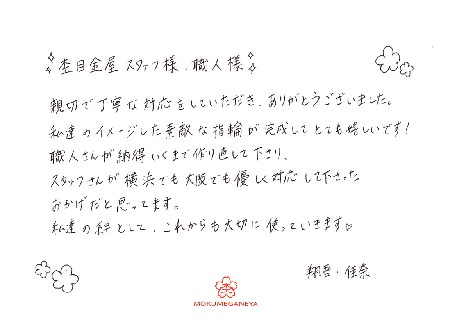 杢目金屋 スタッフ様、職人様
親切で丁寧な対応をしていただき、ありがとうございました。
私達のイメージした素敵な指輪が完成してとても嬉しいです!
職人さんが納得いくまで作り直して下さり、
スタッフさんが横浜でも大阪でも優しく対応して下さった
おかげだと思ってます。
私達の絆として、これからも大切に使っていきます。
翔吾・佳奈
MOKUMEGANEYA